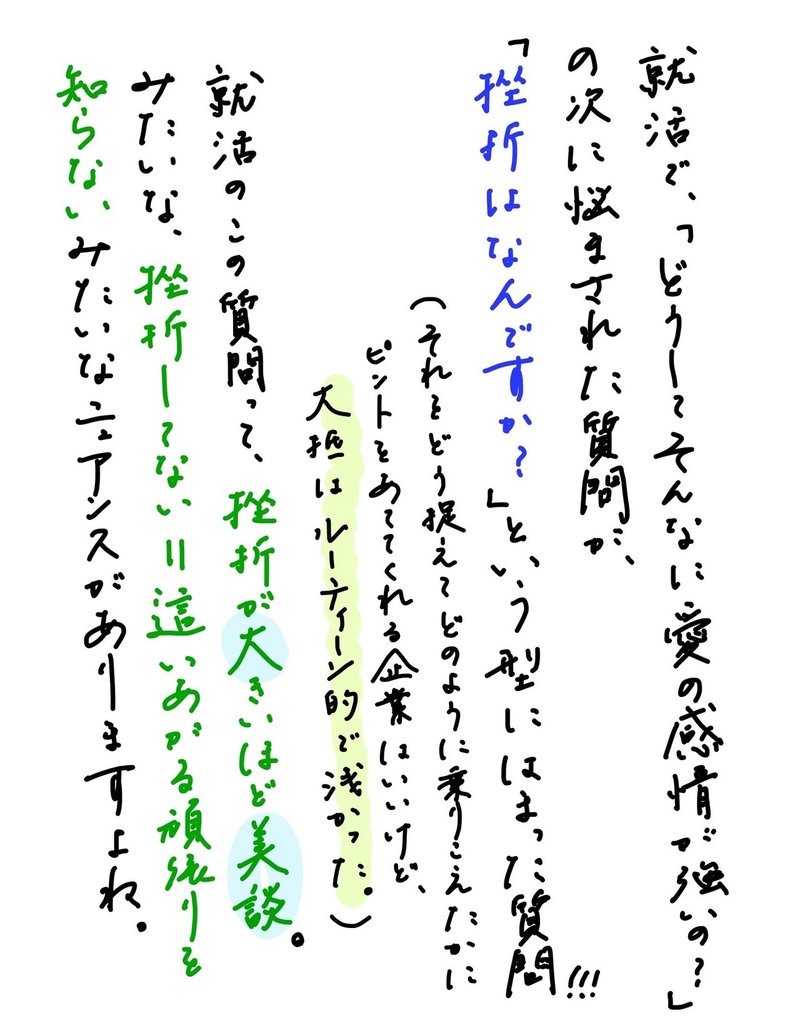 就活で、「どうしてそんなに愛の感情が強いの？」
の次に悩まされた質問が、
「挫折はなんですか？」という型にはまった質問!!!
（それをどう捉えてどのように乗りこえたかに
ピントをあててくれる企業はいいけど、
大抵はルーティーン的で浅かった。）
就活のこの質問って、挫折が大きいほど美談。
みたいな、挫折してない＝這いあがる頑張りを
知らないみたいなニュアンスがありますよね。